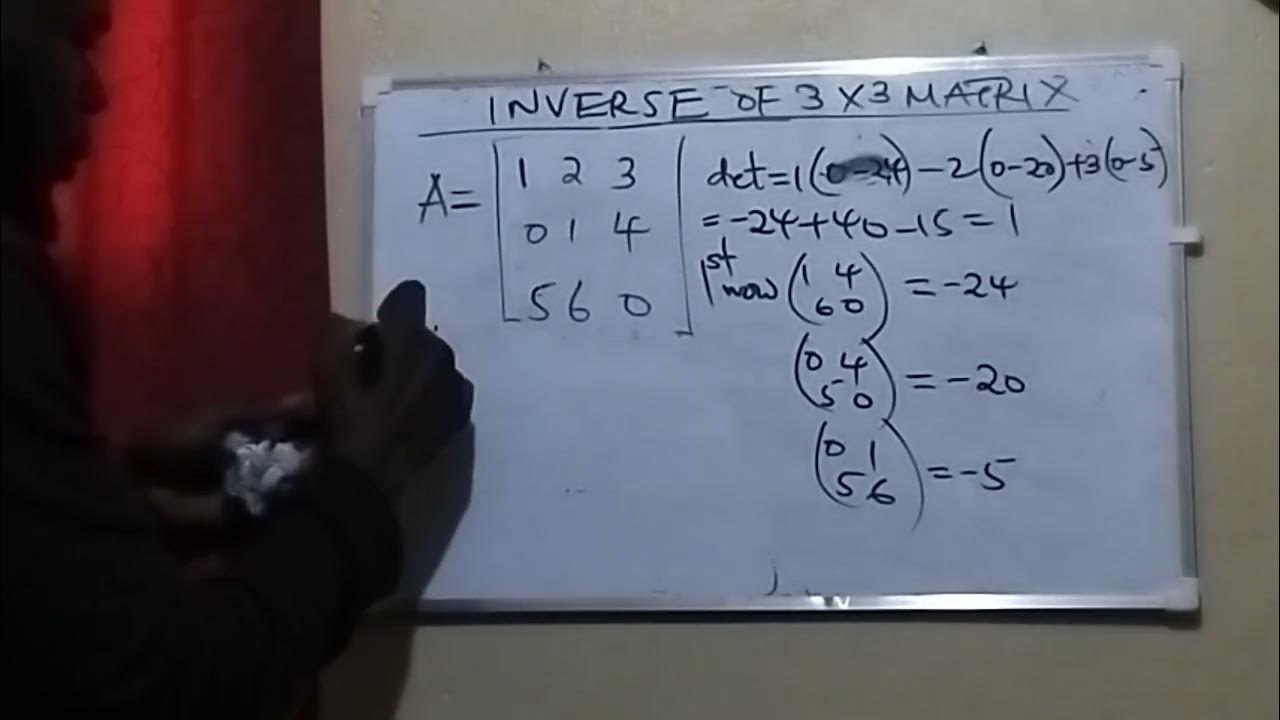 INVERSE OF 3 X 3 MATRIX
A = [1 2 3
0 1 4
5 6 0]
det = 1(0-24) - 2(0-20) + 3(0-5)
= -24 + 40 - 15 = 1
1st row (1 4
6 0) = -24
(0 4
5 0) = -20
(0 1
5 6) = -5